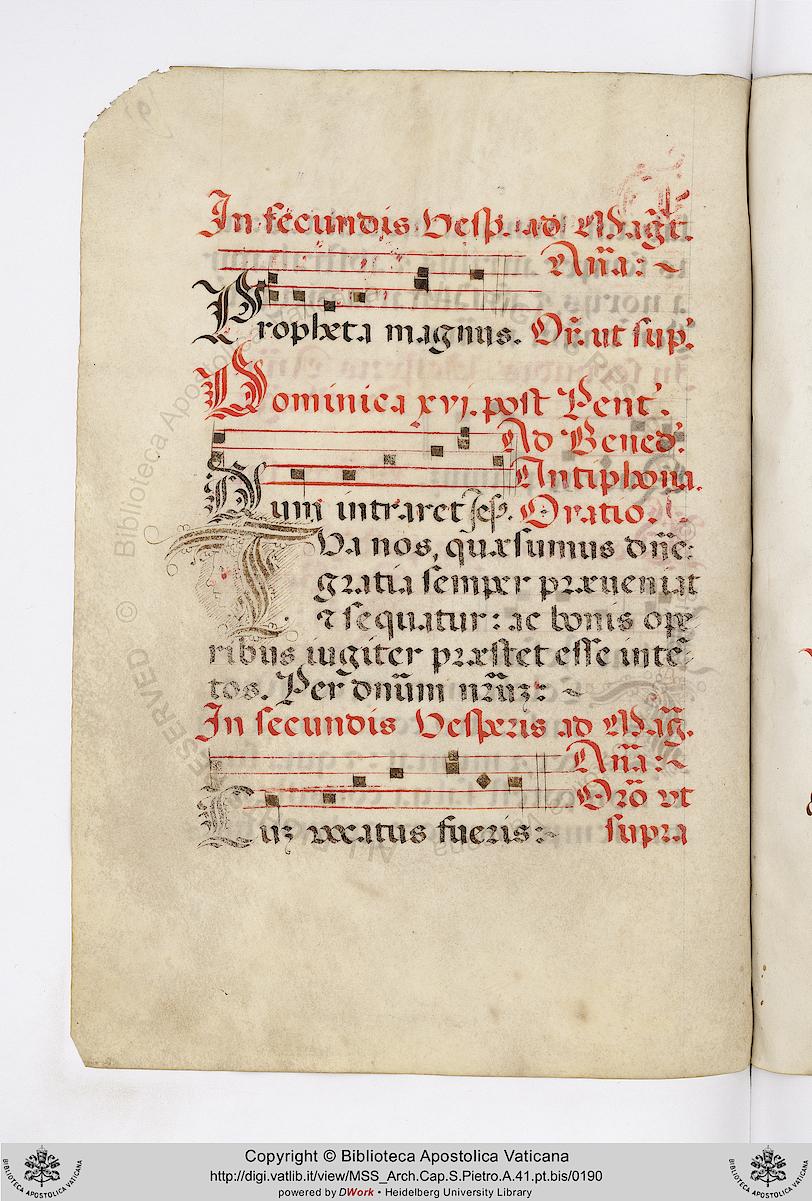 In secundis Vesp. ad Magt̃.
Añа: ~
Propheta magnus. Or̃. ut sup.̃
Dominica xvj. post Pent.̃
Ad Bened.̃
Antiphona.
Cum intraret Jes̃. Oratio.
TVa nos, quæsumus dñe:
gratia semper præueniat
& sequatur: ac bonis ope
ribus iugiter præstet esse inte
tos. Per dnũm nr̃uz: ~
In secundis Vesperis ad Mag̃.
Añа: ~
Orõ vt
Cuz vocatus fueris: ~ supra
Copyright © Biblioteca Apostolica Vaticana
http://digi.vatlib.it/view/MSS_Arch.Cap.S.Pietro.A.41.pt.bis/0190
powered by DWork • Heidelberg University Library